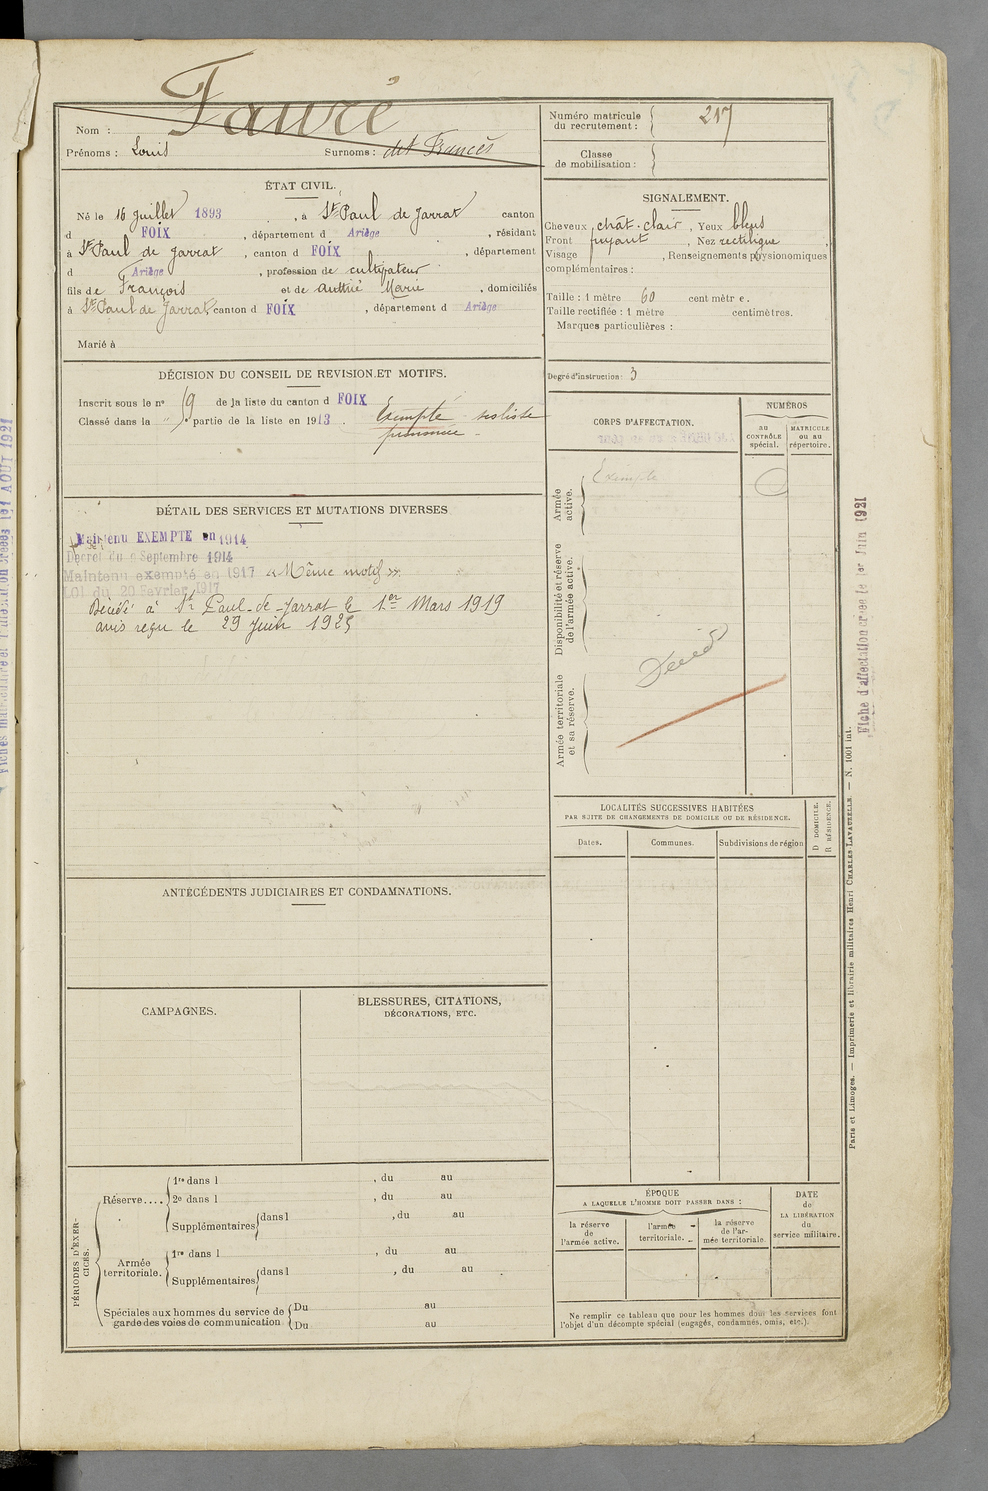 Nom : Fauré
Prénoms : Louis Surnoms : dit Francés
Numéro matricule du recrutement : 217
Classe de mobilisation :
ÉTAT CIVIL.
Né le 16 Juillet 1893, à St Paul de Jarrat canton
d FOIX, département d Ariège, résidant
à St Paul de Jarrat, canton d FOIX, département
d Ariège, profession de cultivateur
fils de François et de Marie, domiciliés
à St Paul de Jarrat canton d FOIX, département d Ariège
Marié à
SIGNALEMENT.
Cheveux chât-clair, Yeux bleus
Front fuyant, Nez rectiligne
Visage , Renseignements physionomiques
complémentaires :
Taille : 1 mètre 60 centimètre.
Taille rectifiée : 1 mètre centimètres.
Marques particulières :
Degré d'instruction : 3
DÉCISION DU CONSEIL DE REVISION ET MOTIFS.
Inscrit sous le no 19 de la liste du canton d FOIX
Classé dans la " partie de la liste en 1913. Exempté
DÉTAIL DES SERVICES ET MUTATIONS DIVERSES
Maintenu EXEMPTE en 1914
Décret du 9 Septembre 1914
Maintenu exempté en 1917 « Même motif ».
LOI du 20 Février 1917
Décédé à St Paul-de-Jarrat le 1er Mars 1919
avis reçu le 29 Juin 1925
CORPS D'AFFECTATION.
NUMÉROS
au CONTRÔLE spécial.
MATRICULE ou au répertoire.
Armée active.
Exempté
Disponibilité et réserve de l'armée active.
Décédé
Armée territoriale et sa réserve.
LOCALITÉS SUCCESSIVES HABITÉES
PAR SUITE DE CHANGEMENTS DE DOMICILE OU DE RÉSIDENCE.
Dates. Communes. Subdivisions de région
D DOMICILE. R RÉSIDENCE.
ANTÉCÉDENTS JUDICIAIRES ET CONDAMNATIONS.
CAMPAGNES.
BLESSURES, CITATIONS,
DÉCORATIONS, ETC.
PÉRIODES D'EXERCICES.
Réserve....
1re dans l , du au
2e dans l , du au
Supplémentaires dans l , du au
Armée territoriale.
1re dans l , du au
Supplémentaires dans l , du au
Spéciales aux hommes du service de garde des voies de communication
Du au
Du au
ÉPOQUE
A LAQUELLE L'HOMME DOIT PASSER DANS :
la réserve de l'armée active.
l'armée territoriale.
la réserve de l'armée territoriale.
DATE de LA LIBÉRATION du service militaire.
Ne remplir ce tableau que pour les hommes dont les services font
l'objet d'un décompte spécial (engagés, condamnés, omis, etc.).
Paris et Limoges. — Imprimerie et librairie militaires Henri CHARLES-LAVAUZELLE. — N. 1001 int.
Fiche d'affectation créée le 1er Juin 1921